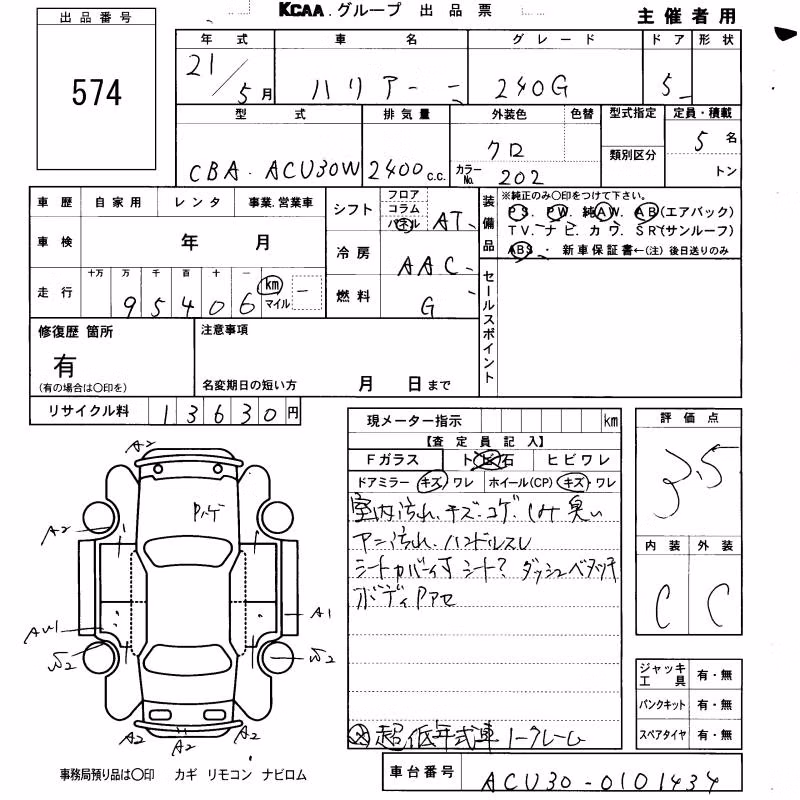 KCAA.グループ 出品票
主催者用
出品番号
574
年式 車名 グレード ドア 形状
21/5月 ハリアー 240G 5
型式 排気量 外装色 色替 型式指定 定員・積載
CBA-ACU30W 2400c.c. クロ 5名
カラーNo. 202 類別区分 トン
車歴 自家用 レンタ 事業.営業車
シフト フロア コラム パネル AT
装備品 ※純正のみ○印をつけて下さい。
PS. PW. 純AW. AB(エアバック)
TV. ナビ. カワ. SR(サンルーフ)
ABS ・ 新車保証書←(注) 後日送りのみ
車検 年 月
冷房 AAC
走行 十万 万 千 百 十 一
95406 km マイル
燃料 G
セールスポイント
修復歴 箇所
有
(有の場合は○印を)
注意事項
名変期日の短い方 月 日まで
リサイクル料 13630円
現メーター指示 km
【査定員記入】
Fガラス トビ石 ヒビワレ
ドアミラー キズ・ワレ ホイール(CP) キズ・ワレ
室内汚れ、キズ・コゲ・しみ 臭い
ハンドルスレ
シートカバー付 シート? ダッシュベタツキ
ボディPアセ
超低年式車 ノークレーム
評価点
3.5
内装 外装
C C
ジャッキ工具 有・無
パンクキット 有・無
スペアタイヤ 有・無
A2
Pハゲ
A2
A1
AW1
A2
A2
A2
事務局預り品は○印 カギ リモコン ナビロム
車台番号 ACU30-0101434